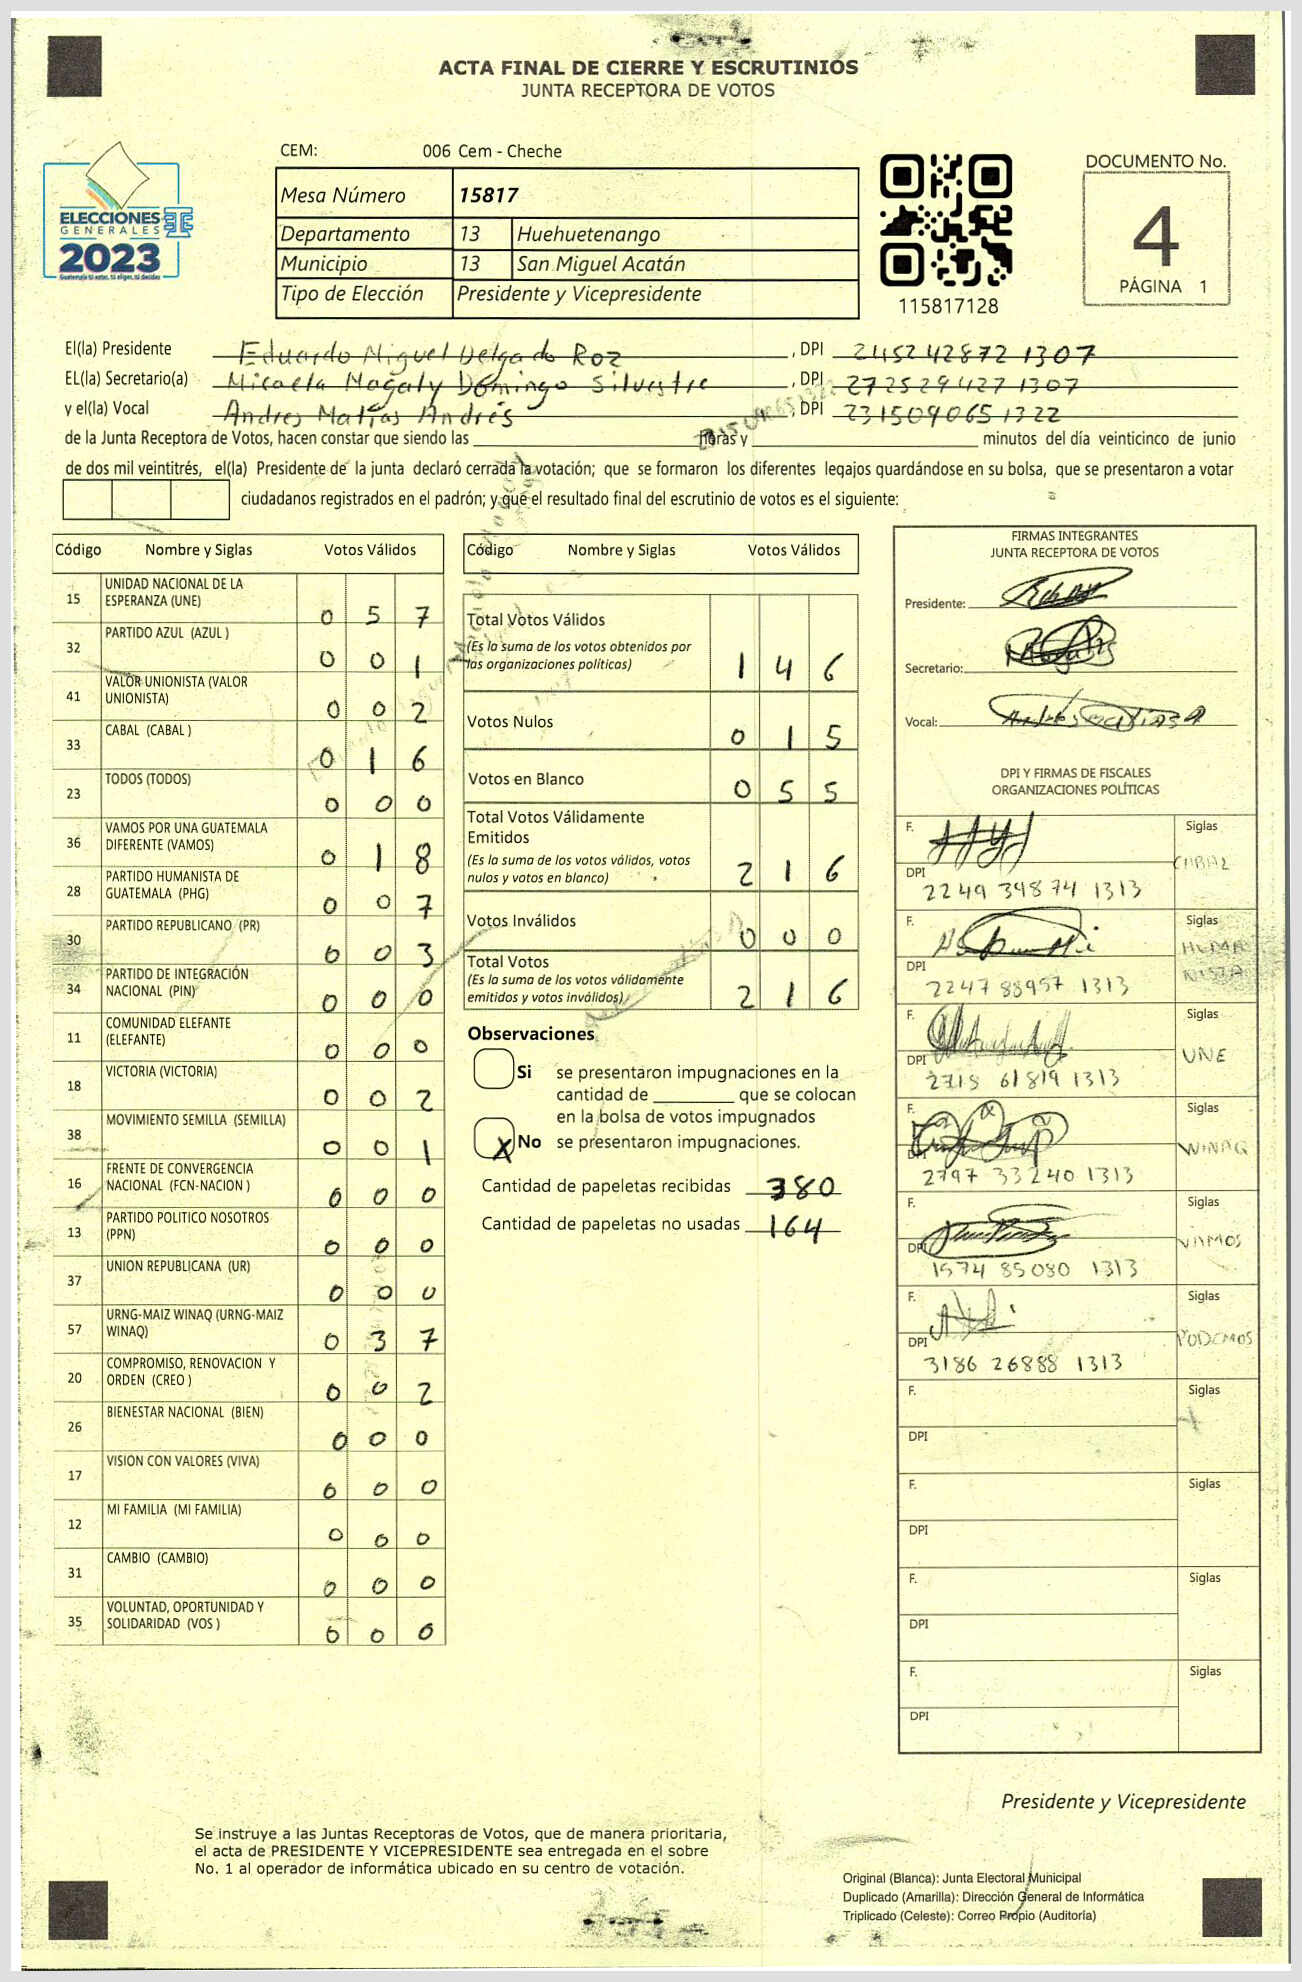 ACTA FINAL DE CIERRE Y ESCRUTINIOS
JUNTA RECEPTORA DE VOTOS
CEM: 006 Cem - Cheche
Mesa Número 15817
Departamento 13 Huehuetenango
Municipio 13 San Miguel Acatán
Tipo de Elección Presidente y Vicepresidente
ELECCIONES
GENERALES
2023
115817128
DOCUMENTO No.
4
PÁGINA 1
El(la) Presidente Eduardo Miguel Delgado Roz , DPI 245242872 1307
EL(la) Secretario(a) Micaela Magaly Domingo Silvestre , DPI 272529427 1307
y el(la) Vocal Andres Matías Andrés , DPI 231509065 1322
de la Junta Receptora de Votos, hacen constar que siendo las horas y minutos del día veinticinco de junio
de dos mil veintitrés, el(la) Presidente de la junta declaró cerrada la votación; que se formaron los diferentes legajos guardándose en su bolsa, que se presentaron a votar
ciudadanos registrados en el padrón; y que el resultado final del escrutinio de votos es el siguiente:
Código Nombre y Siglas Votos Válidos
15 UNIDAD NACIONAL DE LA ESPERANZA (UNE) 0 5 7
32 PARTIDO AZUL (AZUL ) 0 0 1
41 VALOR UNIONISTA (VALOR UNIONISTA) 0 0 2
33 CABAL (CABAL ) 0 1 6
23 TODOS (TODOS) 0 0 0
36 VAMOS POR UNA GUATEMALA DIFERENTE (VAMOS) 0 1 8
28 PARTIDO HUMANISTA DE GUATEMALA (PHG) 0 0 7
30 PARTIDO REPUBLICANO (PR) 0 0 3
34 PARTIDO DE INTEGRACIÓN NACIONAL (PIN) 0 0 0
11 COMUNIDAD ELEFANTE (ELEFANTE) 0 0 0
18 VICTORIA (VICTORIA) 0 0 2
38 MOVIMIENTO SEMILLA (SEMILLA) 0 0 1
16 FRENTE DE CONVERGENCIA NACIONAL (FCN-NACION ) 0 0 0
13 PARTIDO POLITICO NOSOTROS (PPN) 0 0 0
37 UNION REPUBLICANA (UR) 0 0 0
57 URNG-MAIZ WINAQ (URNG-MAIZ WINAQ) 0 3 7
20 COMPROMISO, RENOVACION Y ORDEN (CREO ) 0 0 2
26 BIENESTAR NACIONAL (BIEN) 0 0 0
17 VISION CON VALORES (VIVA) 0 0 0
12 MI FAMILIA (MI FAMILIA) 0 0 0
31 CAMBIO (CAMBIO) 0 0 0
35 VOLUNTAD, OPORTUNIDAD Y SOLIDARIDAD (VOS ) 0 0 0
Código Nombre y Siglas Votos Válidos
Total Votos Válidos 1 4 6
(Es la suma de los votos obtenidos por
las organizaciones políticas)
Votos Nulos 0 1 5
Votos en Blanco 0 5 5
Total Votos Válidamente
Emitidos
(Es la suma de los votos válidos, votos
nulos y votos en blanco) 2 1 6
Votos Inválidos 0 0 0
Total Votos
(Es la suma de los votos válidamente
emitidos y votos inválidos) 2 1 6
Observaciones
Si se presentaron impugnaciones en la
cantidad de que se colocan
en la bolsa de votos impugnados
X No se presentaron impugnaciones.
Cantidad de papeletas recibidas 380
Cantidad de papeletas no usadas 164
FIRMAS INTEGRANTES
JUNTA RECEPTORA DE VOTOS
Presidente:
Secretario:
Vocal:
DPI Y FIRMAS DE FISCALES
ORGANIZACIONES POLÍTICAS
F. Siglas
CABAL
DPI
2249 39874 1313
F. Siglas
HUMA
NISTA
DPI
2247 88957 1313
F. Siglas
UNE
DPI
2718 61819 1313
F. Siglas
WINAQ
DPI
2797 33240 1313
F. Siglas
VAMOS
DPI
1574 85080 1313
F. Siglas
PODEMOS
DPI
3186 26888 1313
F. Siglas
DPI
F. Siglas
DPI
F. Siglas
DPI
F. Siglas
DPI
Presidente y Vicepresidente
Se instruye a las Juntas Receptoras de Votos, que de manera prioritaria,
el acta de PRESIDENTE Y VICEPRESIDENTE sea entregada en el sobre
No. 1 al operador de informática ubicado en su centro de votación.
Original (Blanca): Junta Electoral Municipal
Duplicado (Amarilla): Dirección General de Informática
Triplicado (Celeste): Correo Propio (Auditoría)